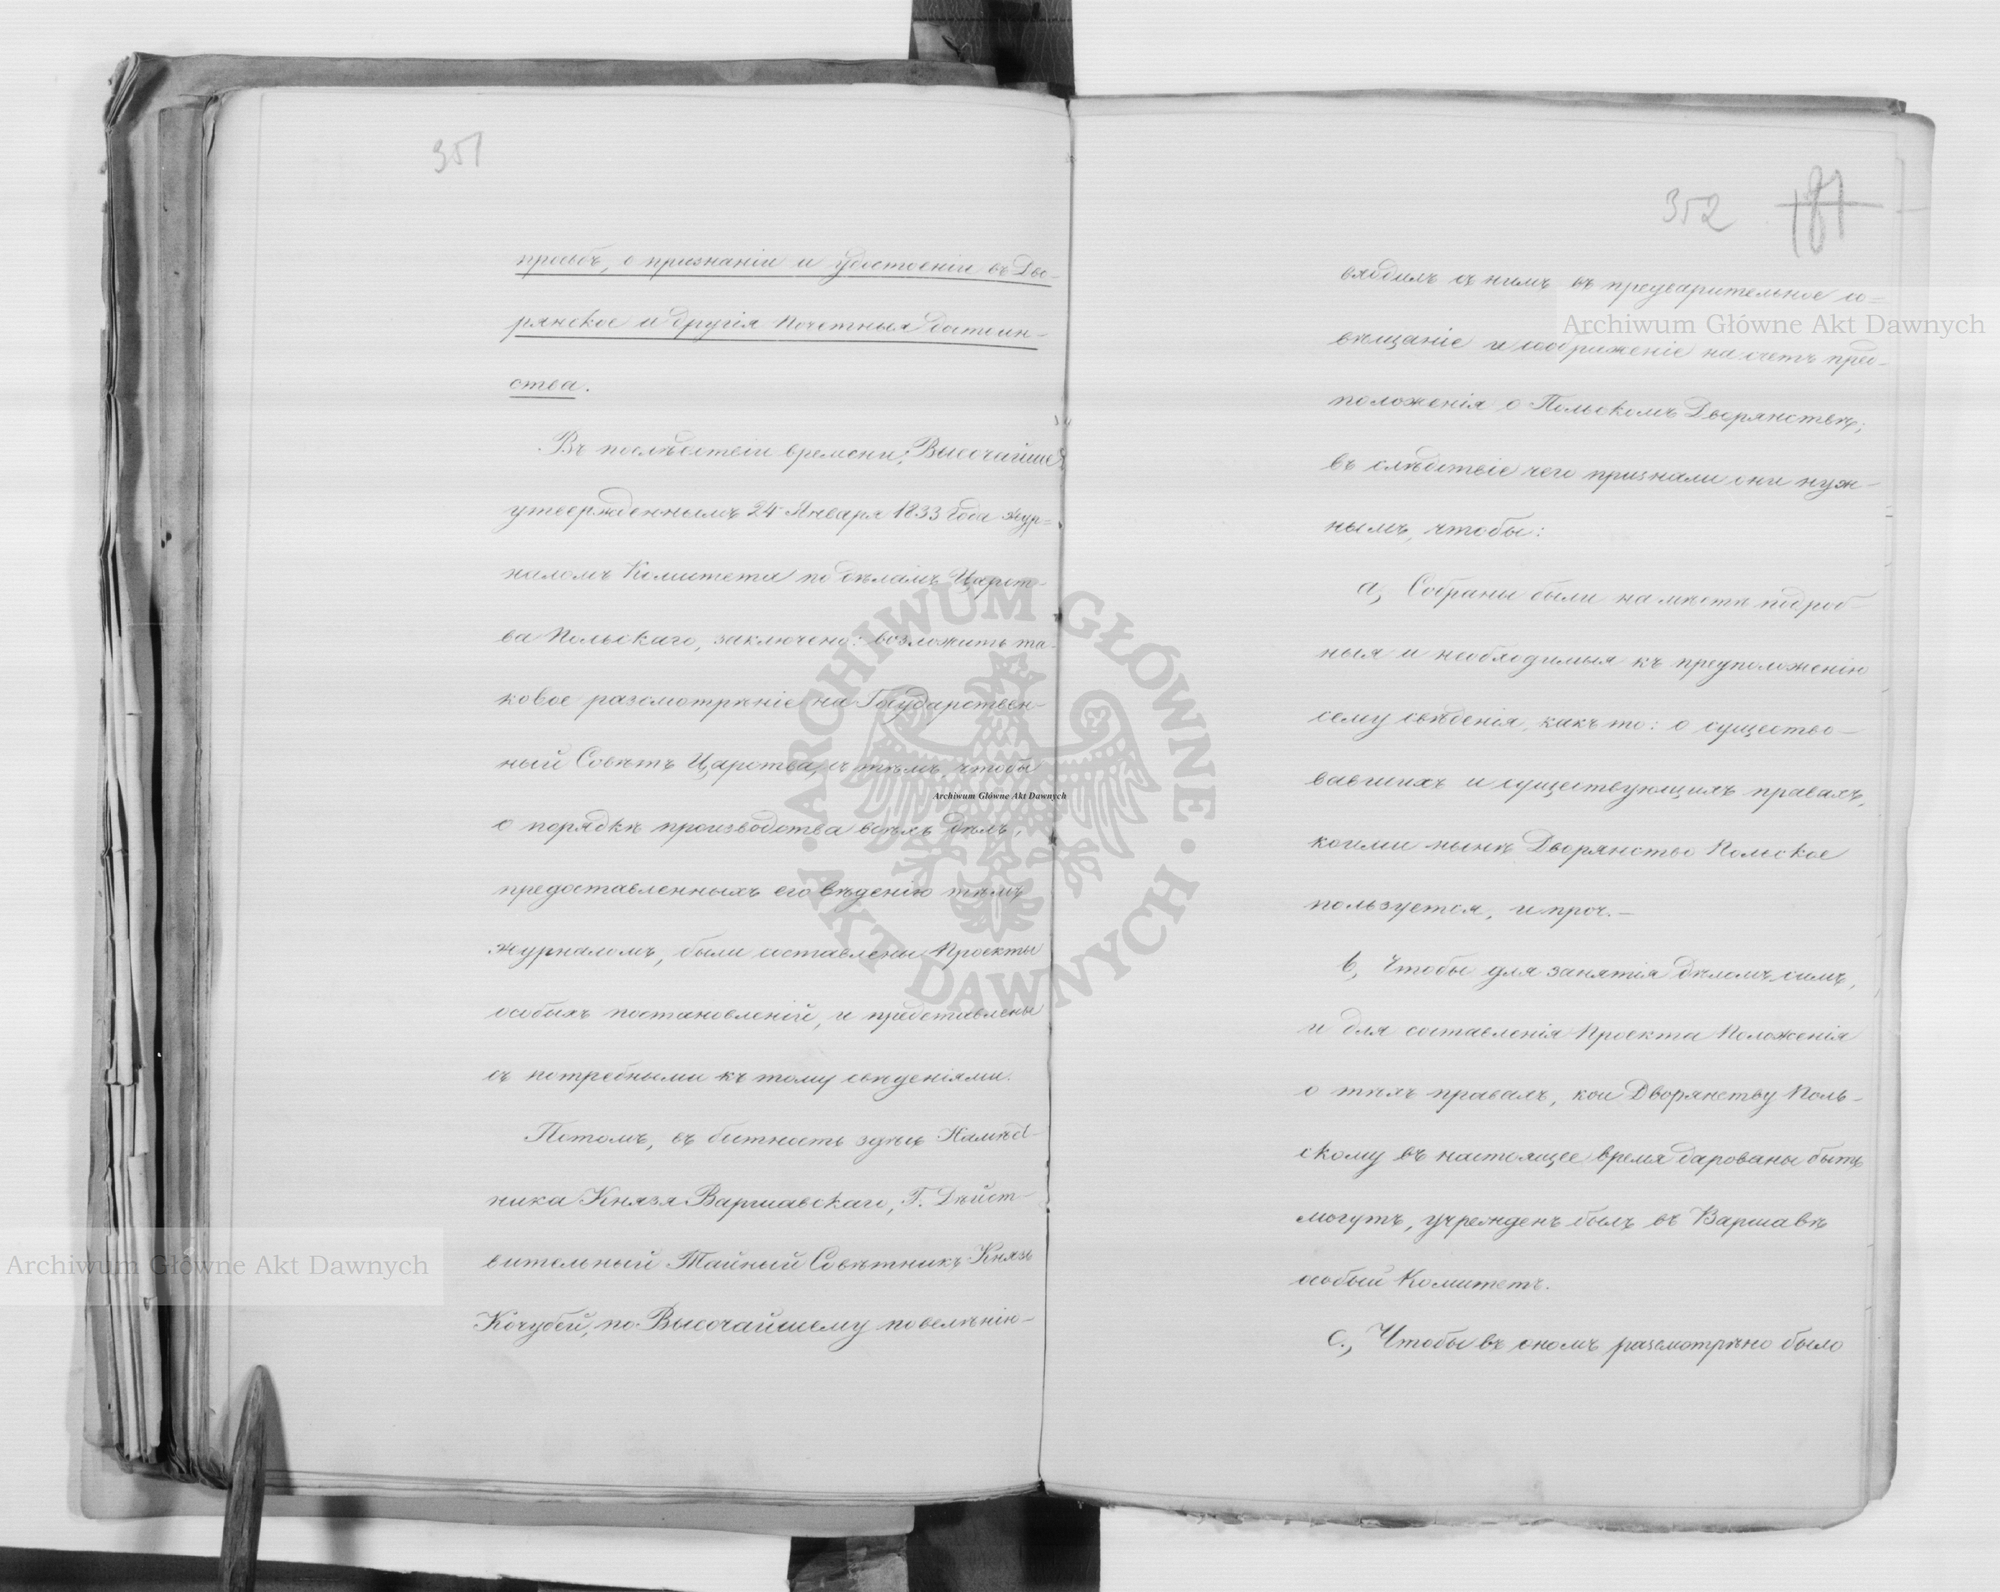 351
просьбъ, о признаніи и удостоеніи въ Дво-
рянское и другія Почетныя достоин-
ства.
Въ послѣдствіи времени, Высочайше
утвержденнымъ 24 Января 1833 года Жур-
наломъ Комитета по дѣламъ Царст-
ва Польскаго, заключено: возложить та-
ковое разсмотрѣніе на Государствен-
ный Совѣтъ Царства, съ тѣмъ, чтобы
о порядкѣ производства всѣхъ дѣлъ,
предоставленныхъ его вѣденію тѣмъ
журналомъ, были составлены Проекты
особыхъ постановленій, и представлены
съ потребными къ тому свѣденіями.
Потомъ, въ бытность здѣсь Намѣст-
ника Князя Варшавскаго, Г. Дѣйст-
вительный Тайный Совѣтникъ Князь
Кочубей, по Высочайшему повелѣнію
352
181
входилъ съ нимъ въ предварительное со-
вѣщаніе и соображеніе на счетъ пред-
положенія о Польскомъ Дворянствѣ;
въ слѣдствіе чего признали они нуж-
нымъ, чтобы:
a, Собраны были на мѣстѣ подроб-
ныя и необходимыя къ предположенію
сему свѣденія, какъ то: о существо-
вавшихъ и существующихъ правахъ,
коими нынѣ Дворянство Польское
пользуется, и проч.
b, Чтобы для занятія дѣломъ симъ,
и для составленія Проекта Положенія
о тѣхъ правахъ, кои Дворянству Поль-
скому въ настоящее время дарованы быть
могутъ, учрежденъ былъ въ Варшавѣ
особый Комитетъ.
c., Чтобы въ ономъ разсмотрѣно было
Archiwum Główne Akt Dawnych
Archiwum Główne Akt Dawnych
Archiwum Główne Akt Dawnych
ARCHIWUM GŁÓWNE · AKT DAWNYCH ·